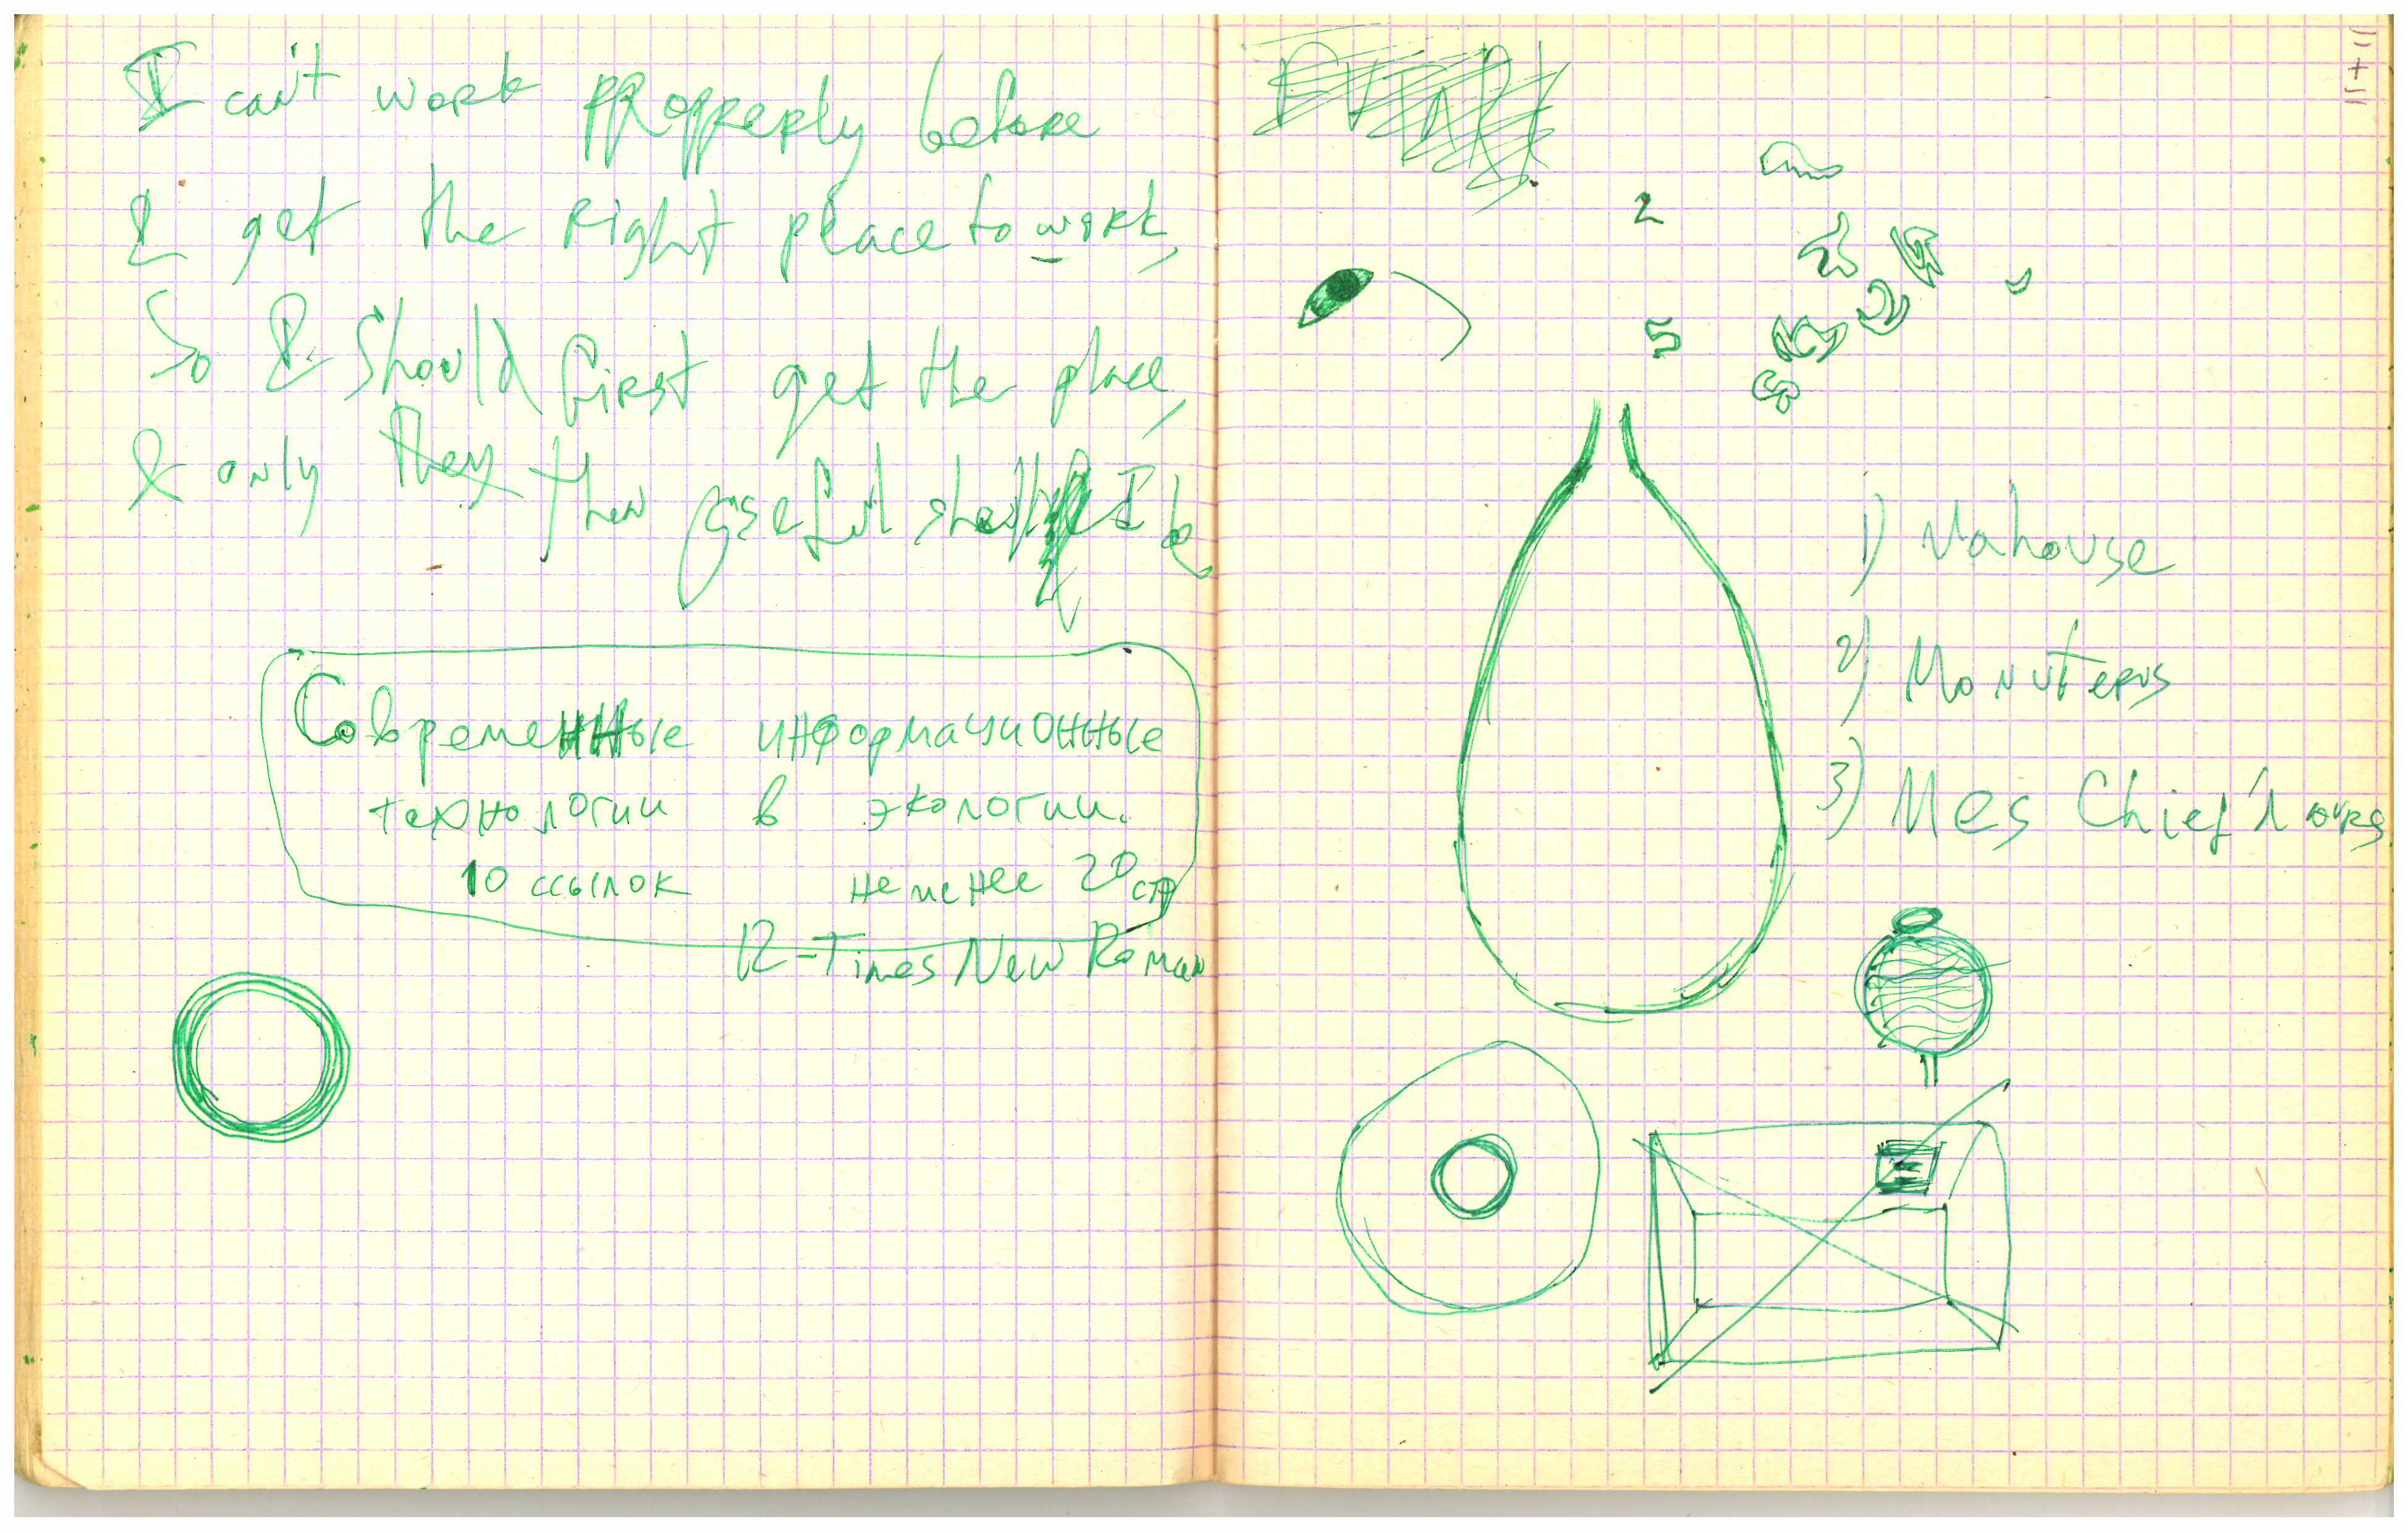 I can't work propperly before
I get the right place to work,
So I should first get the place,
& only they then useful shall I be
Современные информационные
технологии в экологии.
10 ссылок не менее 20 стр
12 - Times New Roman
2
5
1) Mahouse
2) Monuterus
3) Mes Chief'lours